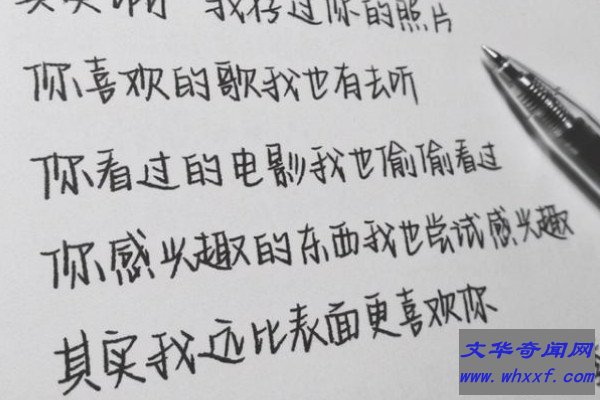 我存过你的照片
你喜欢的歌我也有去听
你看过的电影我也偷偷看过
你感兴趣的东西我也尝试感兴趣
其实我远比表面更喜欢你
文华奇闻网
www.whxxf.com